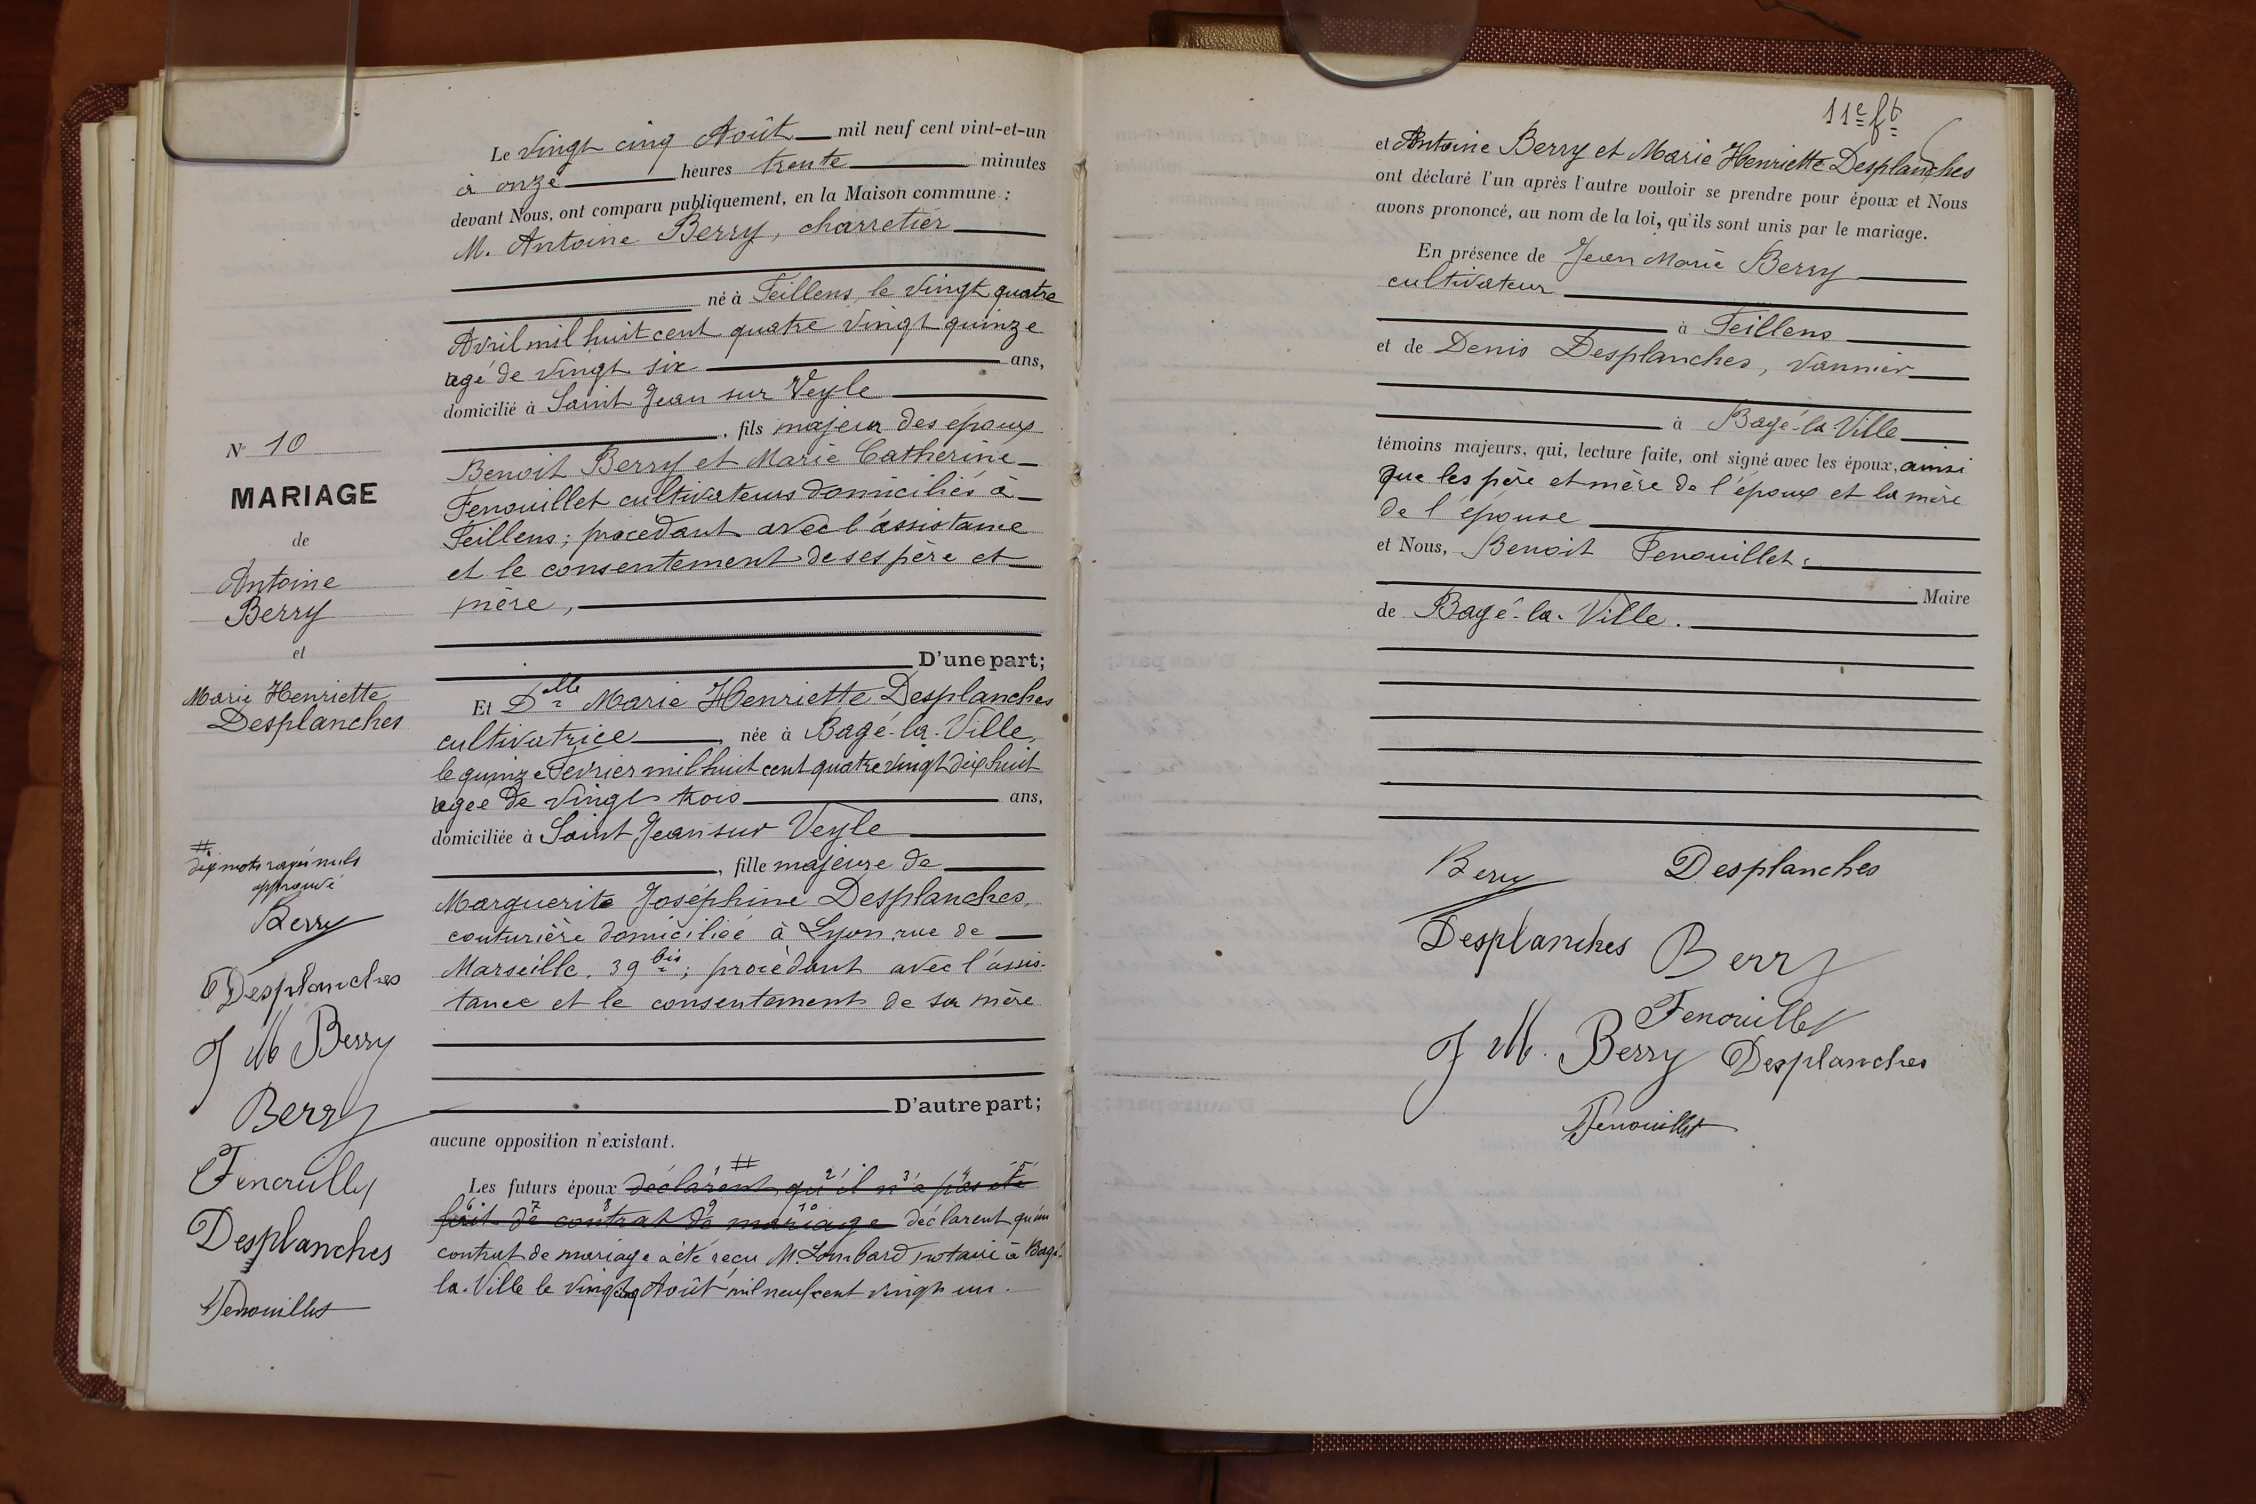 Le vingt cinq Août mil neuf cent vint-et-un
à onze heures trente minutes
devant Nous, ont comparu publiquement, en la Maison commune :
M. Antoine Berry, charretier
né à Feillens, le vingt quatre
Avril mil huit cent quatre vingt quinze
agé de vingt six ans,
domicilié à Saint Jean sur Veyle
, fils majeur des époux
Benoit Berry et Marie Catherine
Fenouillet cultivateurs domiciliés à
Feillens ; procédant avec l'assistance
et le consentement de ses père et
mère,
D'une part;
Et Dlle Marie Henriette Desplanches
cultivatrice, née à Bagé-la-Ville,
le quinze Fevrier mil huit cent quatre vingt dix huit
agee de vingt trois ans,
domiciliée à Saint Jean sur Veyle
, fille majeure de
Marguerite Joséphine Desplanches,
couturière domiciliée à Lyon, rue de
Marseille. 39 bis; procédant avec l'assis-
tance et le consentement de sa mère
D'autre part;
aucune opposition n'existant.
#
1 2 3 4 5
Les futurs époux déclarent qu'il n'a pas été
6 7 8 9 10
fait de contrat de mariage déclarent qu'un
contrat de mariage a été reçu M. Lombard notaire à Bagé-
la-Ville le vingt cinq Août mil neuf cent vingt un.
N° 10
MARIAGE
de
Antoine
Berry
et
Marie Henriette
Desplanches
#
dix mots rayés nuls
approuvé
Berry
Desplanches
J M Berry
Berry
Fenouillet
Desplanches
Fenouillet
11e ft
et Antoine Berry et Marie Henriette Desplanches
ont déclaré l'un après l'autre vouloir se prendre pour époux et Nous
avons prononcé, au nom de la loi, qu'ils sont unis par le mariage.
En présence de Jean Marie Berry
cultivateur
à Feillens
et de Denis Desplanches, vannier
à Bagé-la-Ville
témoins majeurs, qui, lecture faite, ont signé avec les époux, ainsi
que les père et mère de l'époux et la mère
de l'épouse
et Nous, Benoit Fenouillet
Maire
de Bagé-la-Ville.
Berry Desplanches
Desplanches Berry
Fenouillet
J M. Berry Desplanches
Fenouillet